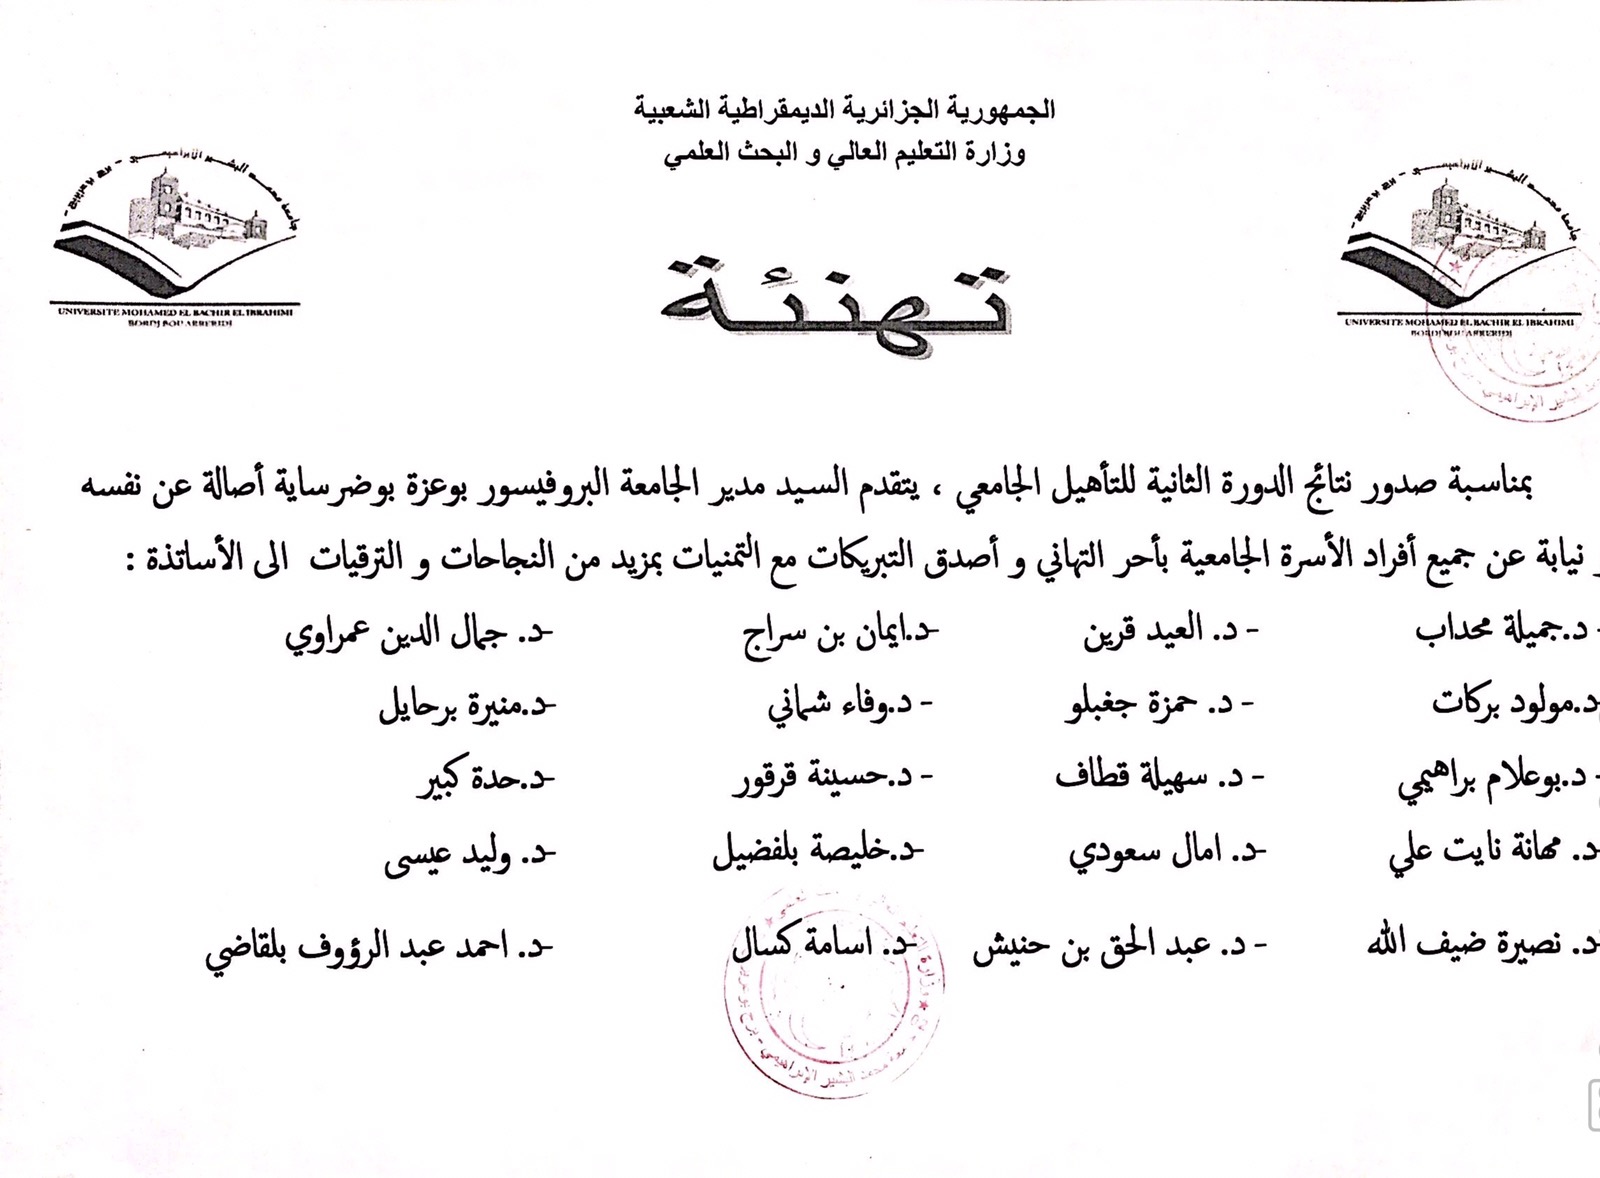 الجمهورية الجزائرية الديمقراطية الشعبية
وزارة التعليم العالي و البحث العلمي
جامعة محمد البشير الإبراهيمي - برج بوعريريج -
UNIVERSITE MOHAMED EL BACHIR EL IBRAHIMI
BORDJ BOU ARRERIDJ
جامعة محمد البشير الإبراهيمي - برج بوعريريج -
UNIVERSITE MOHAMED EL BACHIR EL IBRAHIMI
BORDJ BOU ARRERIDJ
تهنئة
بمناسبة صدور نتائج الدورة الثانية للتأهيل الجامعي ، يتقدم السيد مدير الجامعة البروفيسور بوعزة بوضرساية أصالة عن نفسه
و نيابة عن جميع أفراد الأسرة الجامعية بأحر التهاني و أصدق التبريكات مع التمنيات بمزيد من النجاحات و الترقيات الى الأساتذة :
- د.جميلة محداب - د. العيد قرين -د.ايمان بن سراج -د. جمال الدين عمراوي
-د.مولود بركات - د. حمزة جغبلو - د.وفاء شماني -د.منيرة برحايل
- د.بوعلام براهيمي - د. سهيلة قطاف - د.حسينة قرقور -د.حدة كبير
-د. مهانة نايت علي -د. امال سعودي -د.خليصة بلفضيل -د. وليد عيسى
-د. نصيرة ضيف الله - د. عبد الحق بن حنيش -د. اسامة كسال -د. احمد عبد الرؤوف بلقاضي
محمد البشير الإبراهيمي